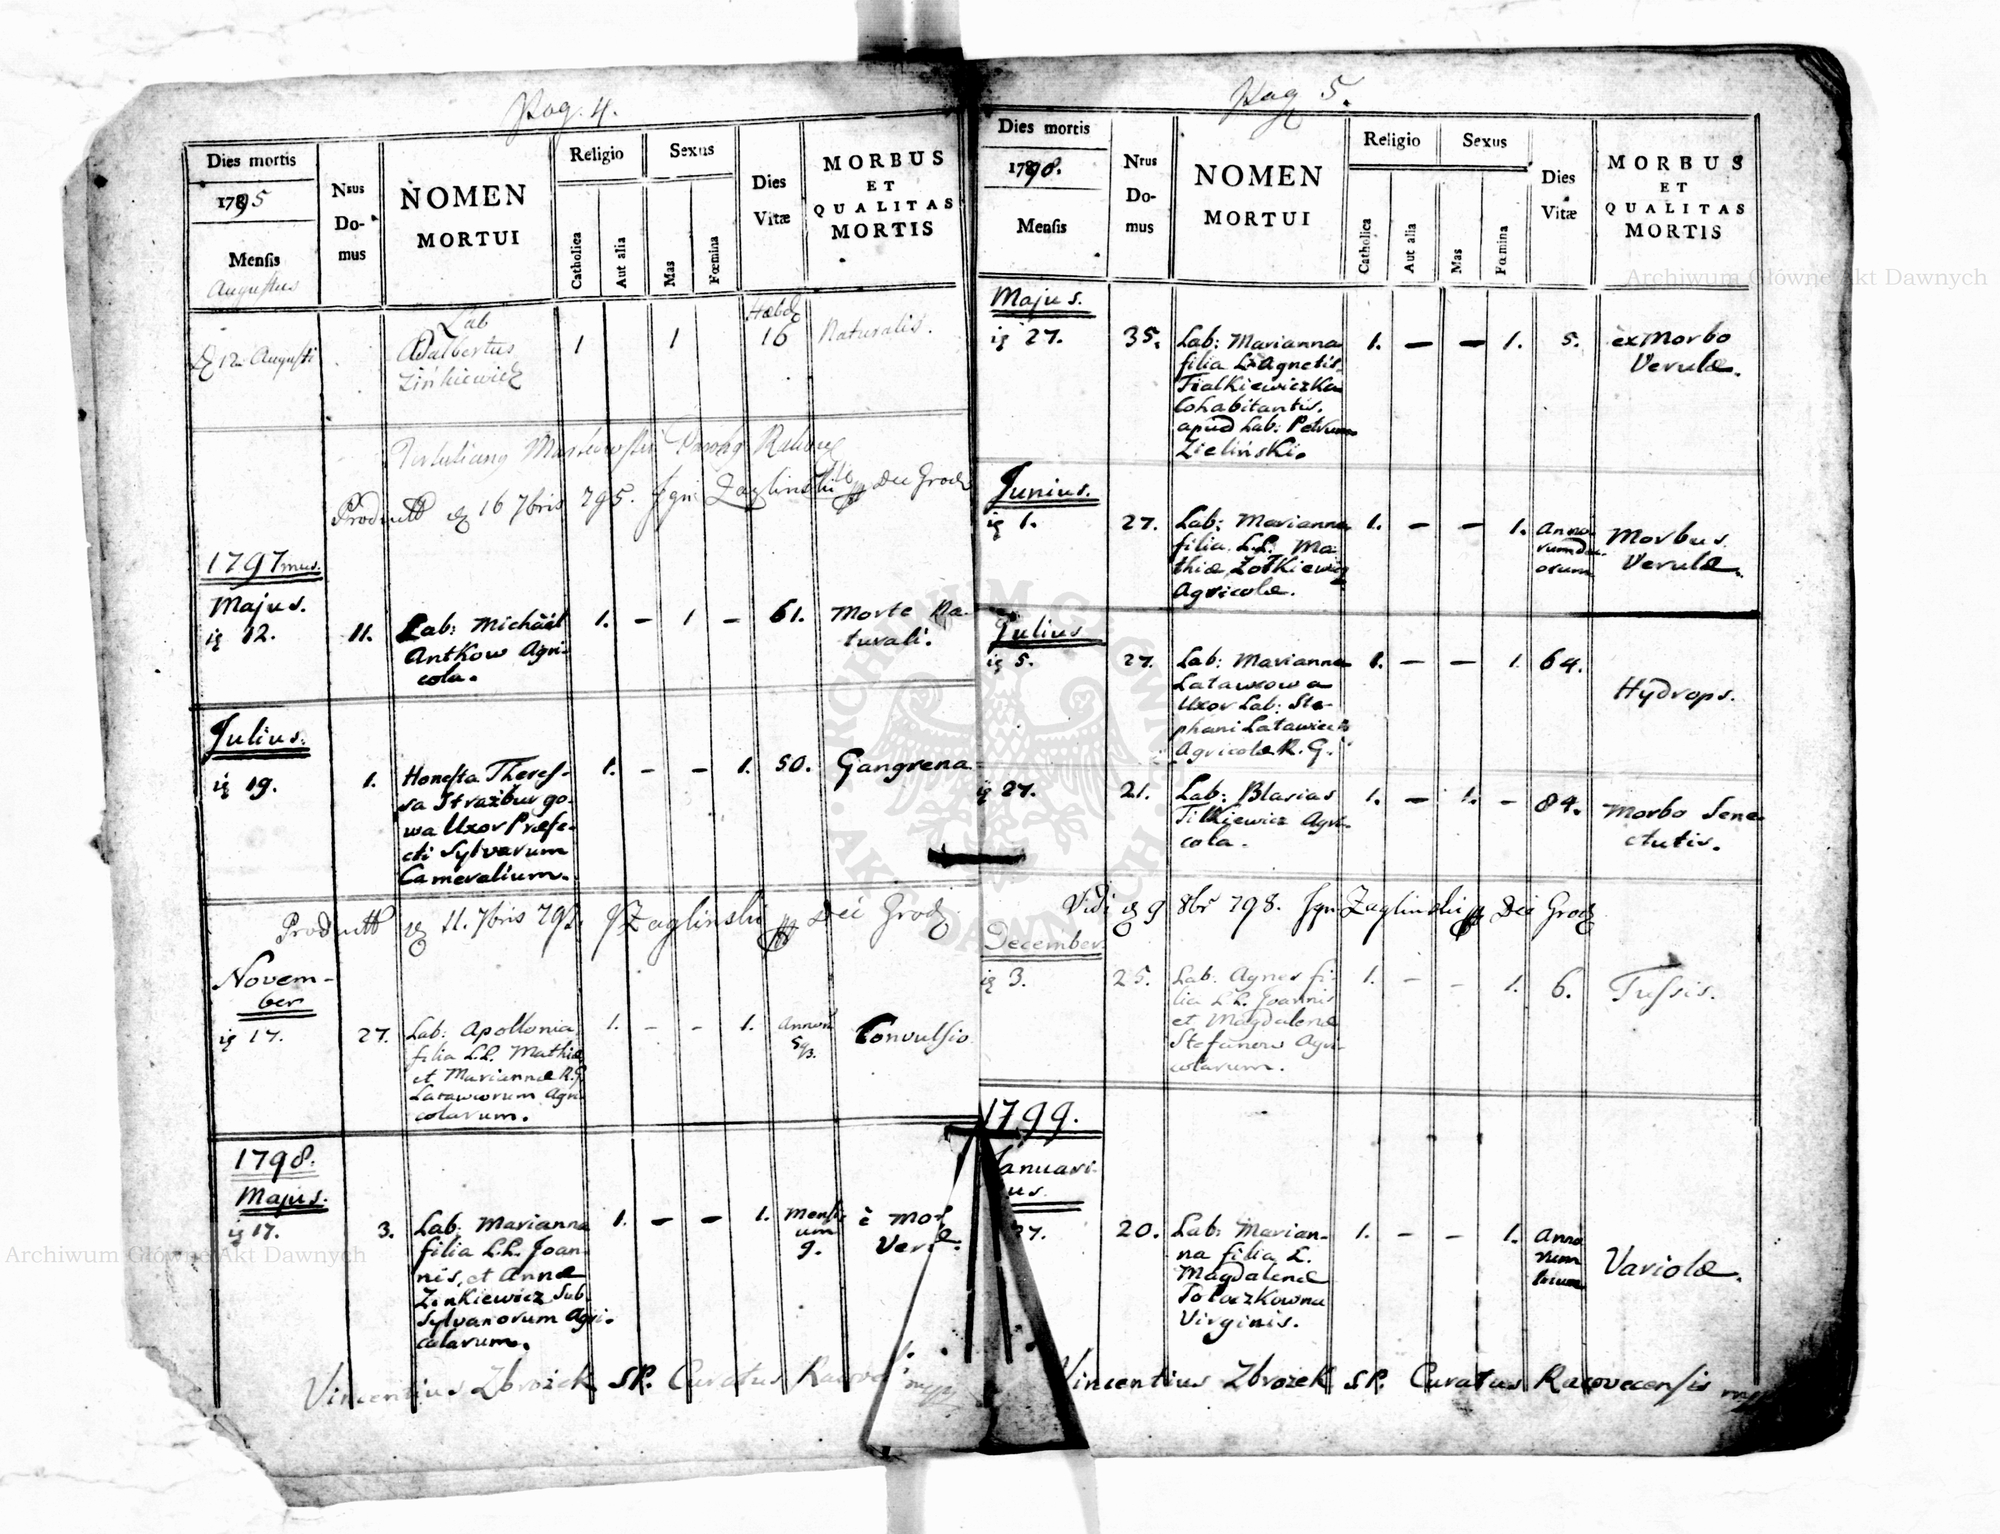 Pag. 4.
Dies mortis
1795
Mensis
Augustus
Nrus
Do-
mus
NOMEN
MORTUI
Religio
Catholica
Aut alia
Sexus
Mas
Fœmina
Dies
Vitæ
MORBUS
ET
QUALITAS
MORTIS
12 Augusti
Lab
Adalbertus
Zińkiewicz
1
1
16
Naturalis.
Produtt 16 7bris 795. Zaglinski Grodz
1797mus.
Majus.
12.
11.
Lab: Michäel
Antkow Agri-
cola.
1. – 1 –
61.
Morte Na-
turali.
Julius.
19.
1.
Honesta Theres-
sa Strazburgo-
wa Uxor Præfe-
cti Sylvarum
Cameralium.
1. – – 1.
50.
Gangrena
Produtt 11. 7bris Zaglinski Grodz
Novem-
ber
17.
27.
Lab: Apollonia
filia L.L. Mathiæ
et Mariannæ R.G.
Latawcorum Agri-
colarum.
1. – – 1.
Convulsio
1798.
Majus.
17.
3.
Lab: Marianna
filia L.L. Joan-
nis, et Annæ
Zinkiewicz Sub
Sylvanorum Agri-
colarum.
1. – – 1.
Mensi
um
9.
è Mor
Verulæ.
Vincentius Zbrożek SP. Curatus
Pag 5.
Dies mortis
1798.
Mensis
Nrus
Do-
mus
NOMEN
MORTUI
Religio
Catholica
Aut alia
Sexus
Mas
Fœmina
Dies
Vitæ
MORBUS
ET
QUALITAS
MORTIS
Majus.
27.
35.
Lab: Marianna
filia L. Agnetis
Fialkiewiczka
Cohabitantis.
apud Lab: Petrum
Zieliński.
1. – – 1.
5.
èx Morbo
Verulæ.
Junius.
1.
27.
Lab: Marianna
filia L.L. Ma-
thiæ Zolkiewicz
Agricolæ.
1. – – 1.
Anno-
rum du-
orum
Morbus
Verulæ.
Julius
5.
27.
Lab: Marianna
Latawcowa
Uxor Lab: Ste-
phani Latawiec
Agricolæ R. G.
1. – – 1.
64.
Hydrops.
27.
21.
Lab: Blasius
Filkiewicz Agri-
cola.
1. – 1. –
84.
Morbo Sene-
ctutis.
Vidi 9 8br 798. Zaglinski Grodz
December
3.
25.
Lab: Agnes fi-
lia L.L. Joannis
et Magdalenæ
Stefanow Agri-
colarum.
1. – – 1.
6.
Tussis.
1799.
Januari-
us.
27.
20.
Lab: Marian-
na filia L.
Magdalenæ
Virginis.
1. – – 1.
Anno
rum
trium
Variolæ.
Vincentius Zbrożek SP. Curatus Racovecensis mpp
Archiwum Główne Akt Dawnych
Archiwum Główne Akt Dawnych
ARCHIWUM GŁÓWNE AKT DAWNYCH